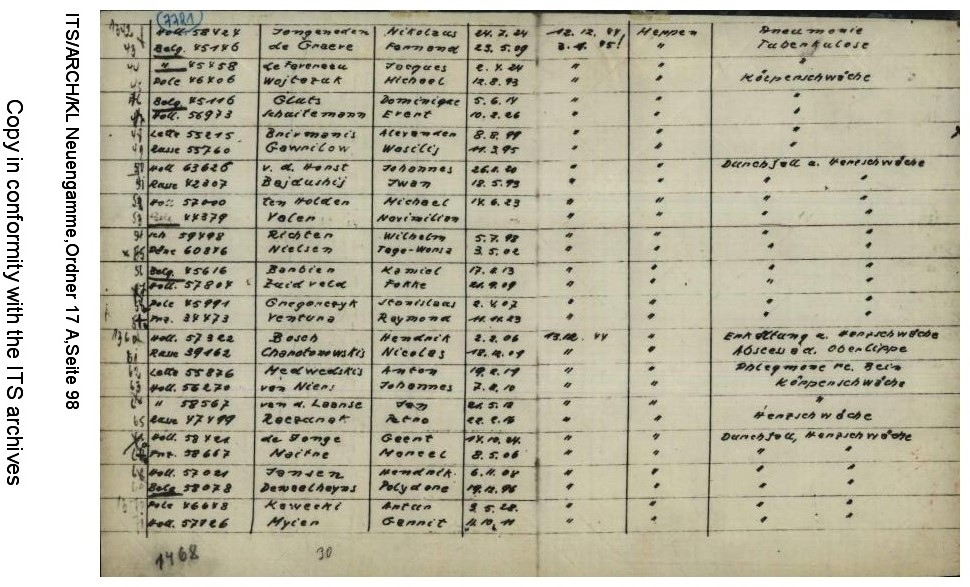 ITS/ARCH/KL Neuengamme,Ordner 17 A,Seite 98
Copy in conformity with the ITS archives
(7781)
Holl. 58424 Jongeneden Nikolaus 24.7.24 12.12.44 Meppen Pneumonie
43 Belg. 45146 de Graeve Fernand 23.5.09 " Tuberkulose
" 45458 Jacques 2.4.24 " " "
Pole 46406 Wojtozak Michael 12.8.93 " " Körperschwäche
Belg. 45116 Gluts Dominique 5.6.14 " " "
Holl. 56973 Schuitemann Evert 10.2.26 " " "
Lette 55215 Brirmanis Alexander 8.8.99 " " "
Russe 55760 Gawrilow Wasilij 11.3.95 " " "
Holl 63626 v. d. Horst Johannes 26.1.20 " " Durchfall u. Herzschwäche
Russe 42307 Bojdushij Iwan 18.5.93 " " " "
57000 ten Holden Michael 14.6.23 " " " "
44379 Valer Noximilien " " " "
59498 Richter Wilhelm 5.7.98 " " " "
Däne 60876 Nielsen Tage-Worsa 3.5.02 " " " "
Belg. 45616 Barbien Kamiel 17.6.13 " " " "
Holl. 57804 Zuidveld Fokke 21.9.09 " " " "
Pole 45991 Gregorczyk Stanislaus 2.4.07 " " " "
Frz. 34473 Ventura Raymond 11.11.23 " " " "
Holl. 57322 Bosch Hendrik 2.2.06 13.12.44 " Erkältung u. Herzschwäche
Russe 39162 Charatonowskis Nicolas 18.12.01 " " Abscess d. Oberlippe
Lette 55876 Medwedskis Anton 19.2.19 " " Phlegmone re. Bein
Holl. 56270 van Niers Johannes 7.8.10 " " Körperschwäche
" 58567 van d. Laanse Jan 21.5.18 " " "
65 Russe 47499 Petro " " Herzschwäche
Holl. 58421 de Jonge Geert 14.10.04. " " Durchfall, Herzschwäche
Frz. 38667 Maitre Marcel 8.5.06 " " " "
Holl. 57021 Jansen Hendrik 6.11.04 " " " "
Belg. 58078 Polydore 19.12.96 " " " "
Pole 46648 Kawecki Antun 2.5.22. " " " "
Holl. 57426 Mylen Gerrit 11.10.11 " " " "
1468 30